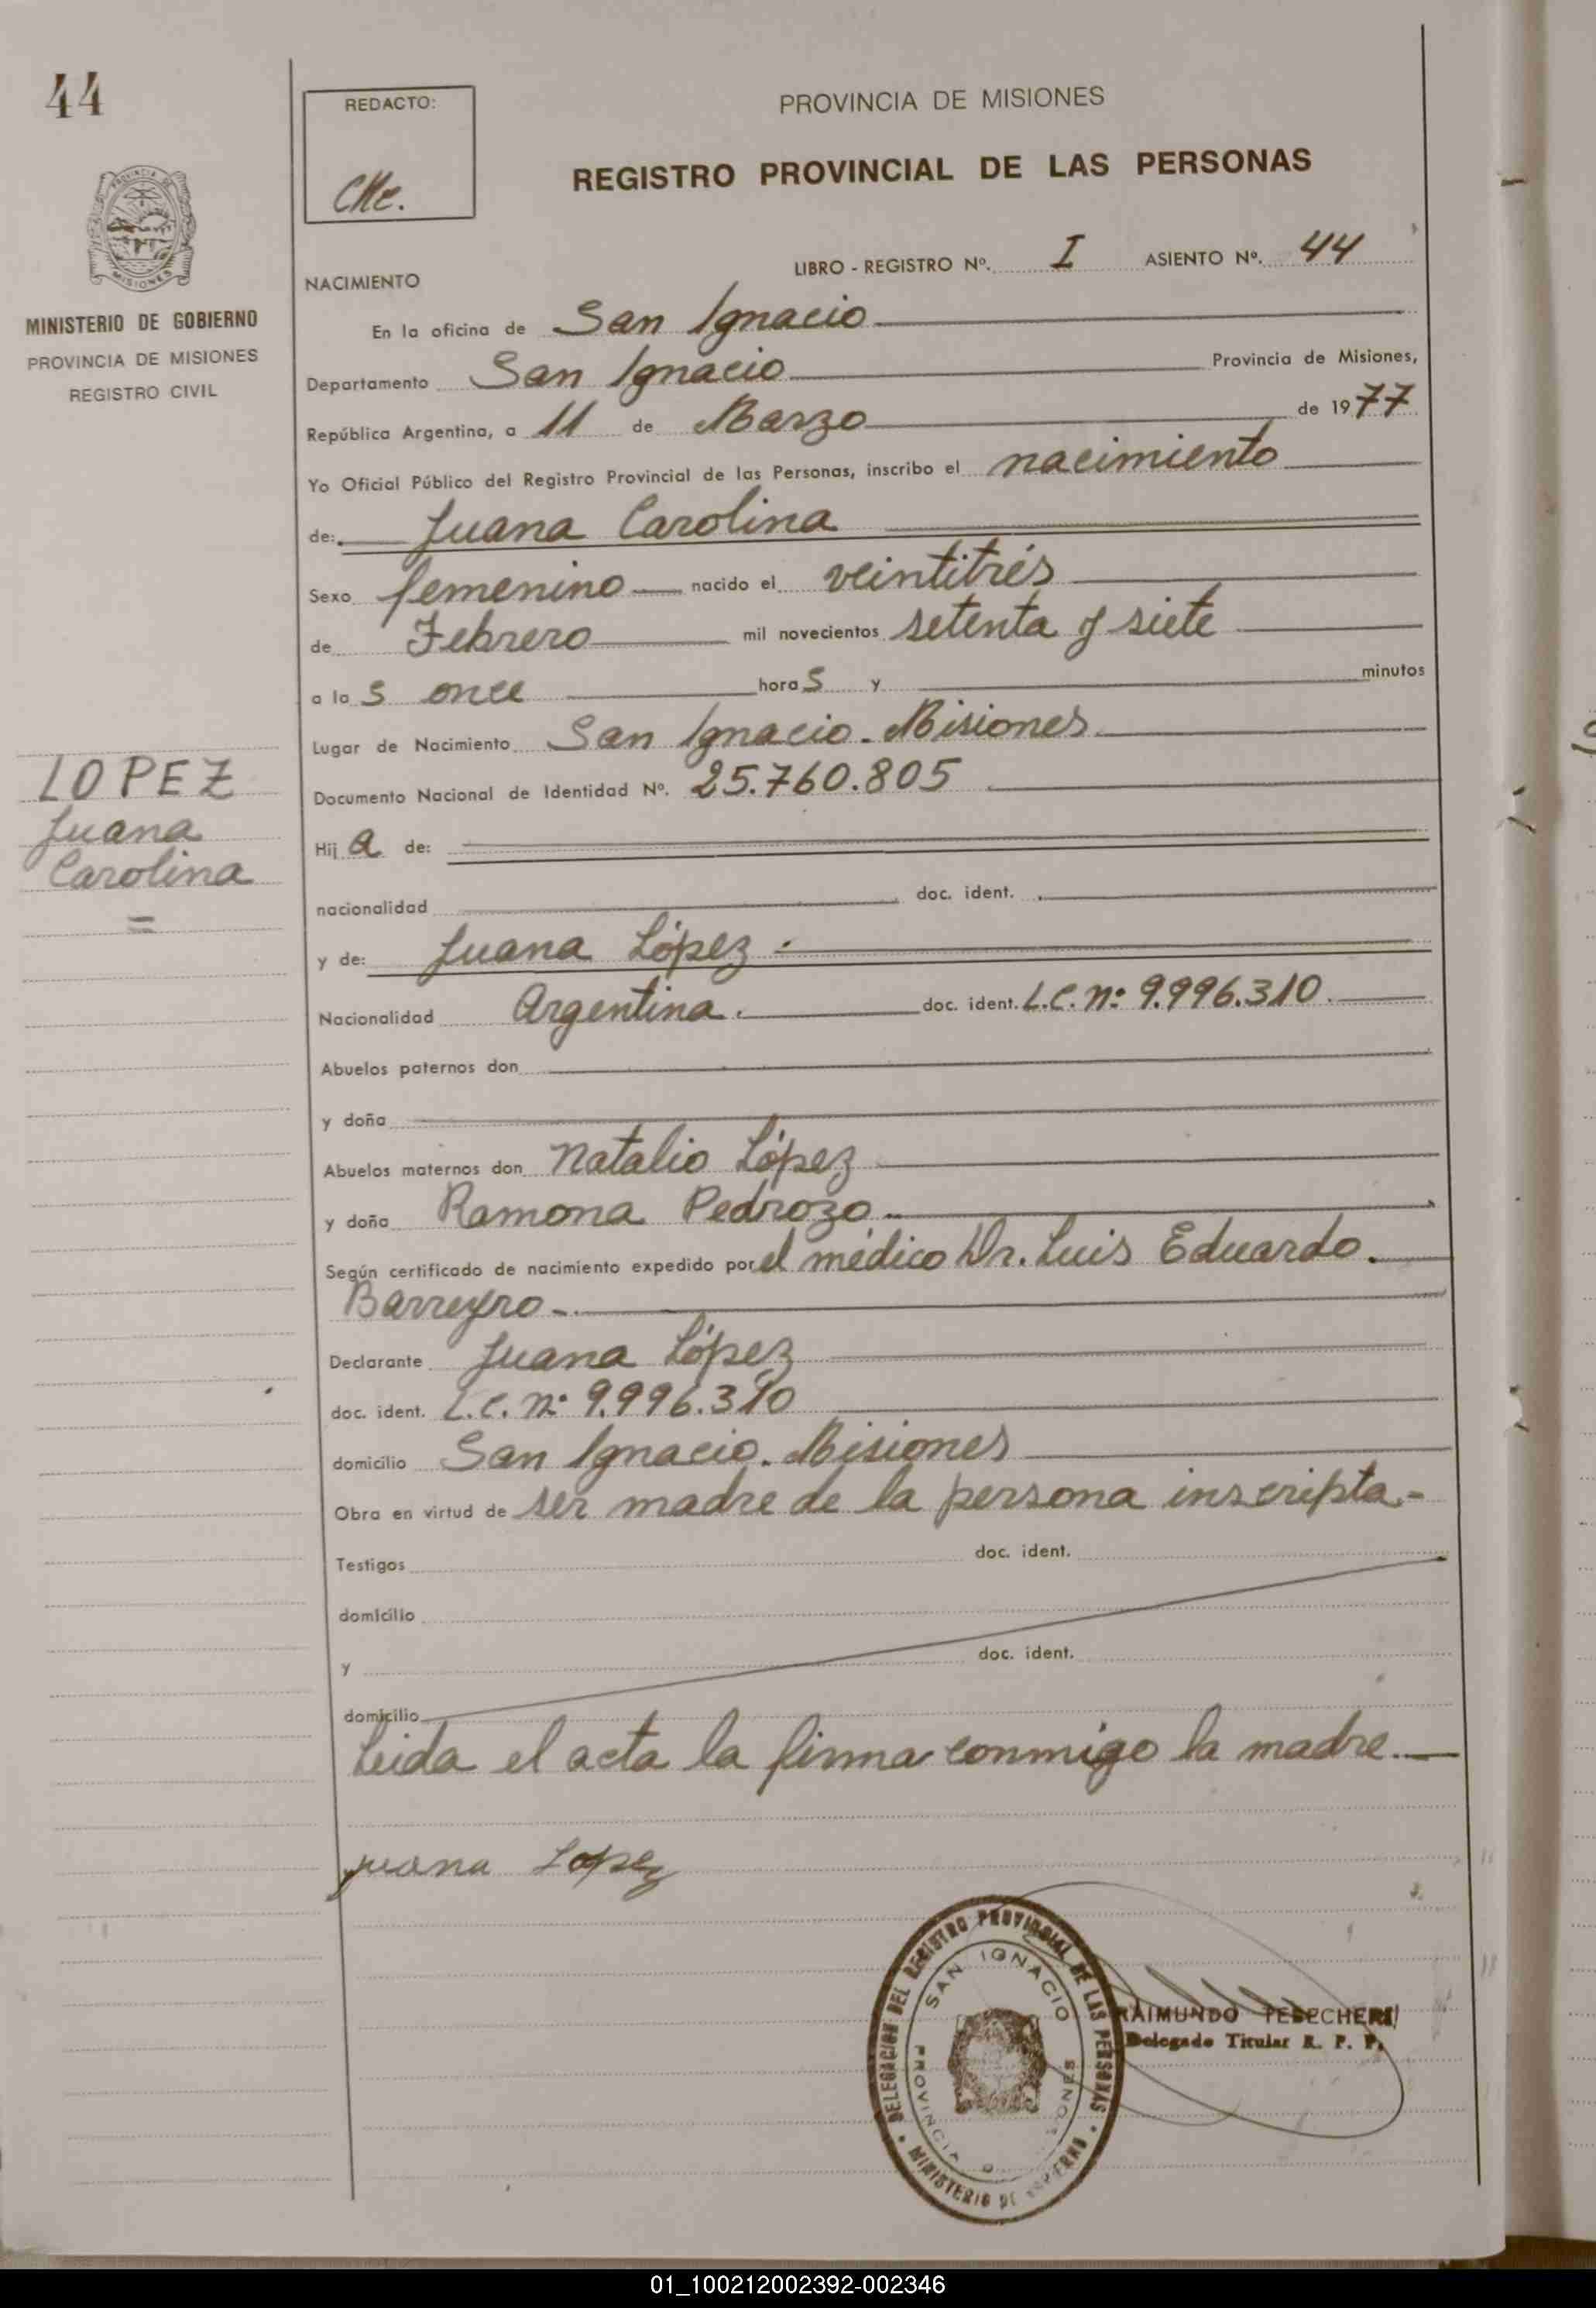 44
REDACTO:
PROVINCIA DE MISIONES
REGISTRO PROVINCIAL DE LAS PERSONAS
LIBRO - REGISTRO Nº. I ASIENTO Nº. 44
NACIMIENTO
MISIONES
MINISTERIO DE GOBIERNO
PROVINCIA DE MISIONES
REGISTRO CIVIL
En la oficina de San Ignacio
Departamento San Ignacio Provincia de Misiones,
República Argentina, a 11 de Marzo de 1977
Yo Oficial Público del Registro Provincial de las Personas, inscribo el nacimiento
de: Juana Carolina
Sexo femenino nacido el veintitrés
de Febrero mil novecientos setenta y siete
a las once horas y minutos
Lugar de Nacimiento San Ignacio. Misiones
LOPEZ
Juana
Carolina
Documento Nacional de Identidad Nº. 25.760.805
Hija de:
nacionalidad doc. ident.
y de: Juana López.
Nacionalidad Argentina. doc. ident. L.C. nº 9.996.310.
Abuelos paternos don
y doña
Abuelos maternos don Natalio López
y doña Ramona Pedrozo
Según certificado de nacimiento expedido por el médico Dr. Luis Eduardo.
Barreyro-.
Declarante Juana López
doc. ident. L.C. nº 9.996.310
domicilio San Ignacio. Misiones
Obra en virtud de ser madre de la persona inscripta.-
Testigos doc. ident.
domicilio
y doc. ident.
domicilio
Leida el acta la firma conmigo la madre.
juana Lopez
DELEGACION DEL REGISTRO PROVINCIAL DE LAS PERSONAS
SAN IGNACIO
PROVINCIA
MINISTERIO DE
RAIMUNDO
Delegado Titular R. P. P.
01_100212002392-002346